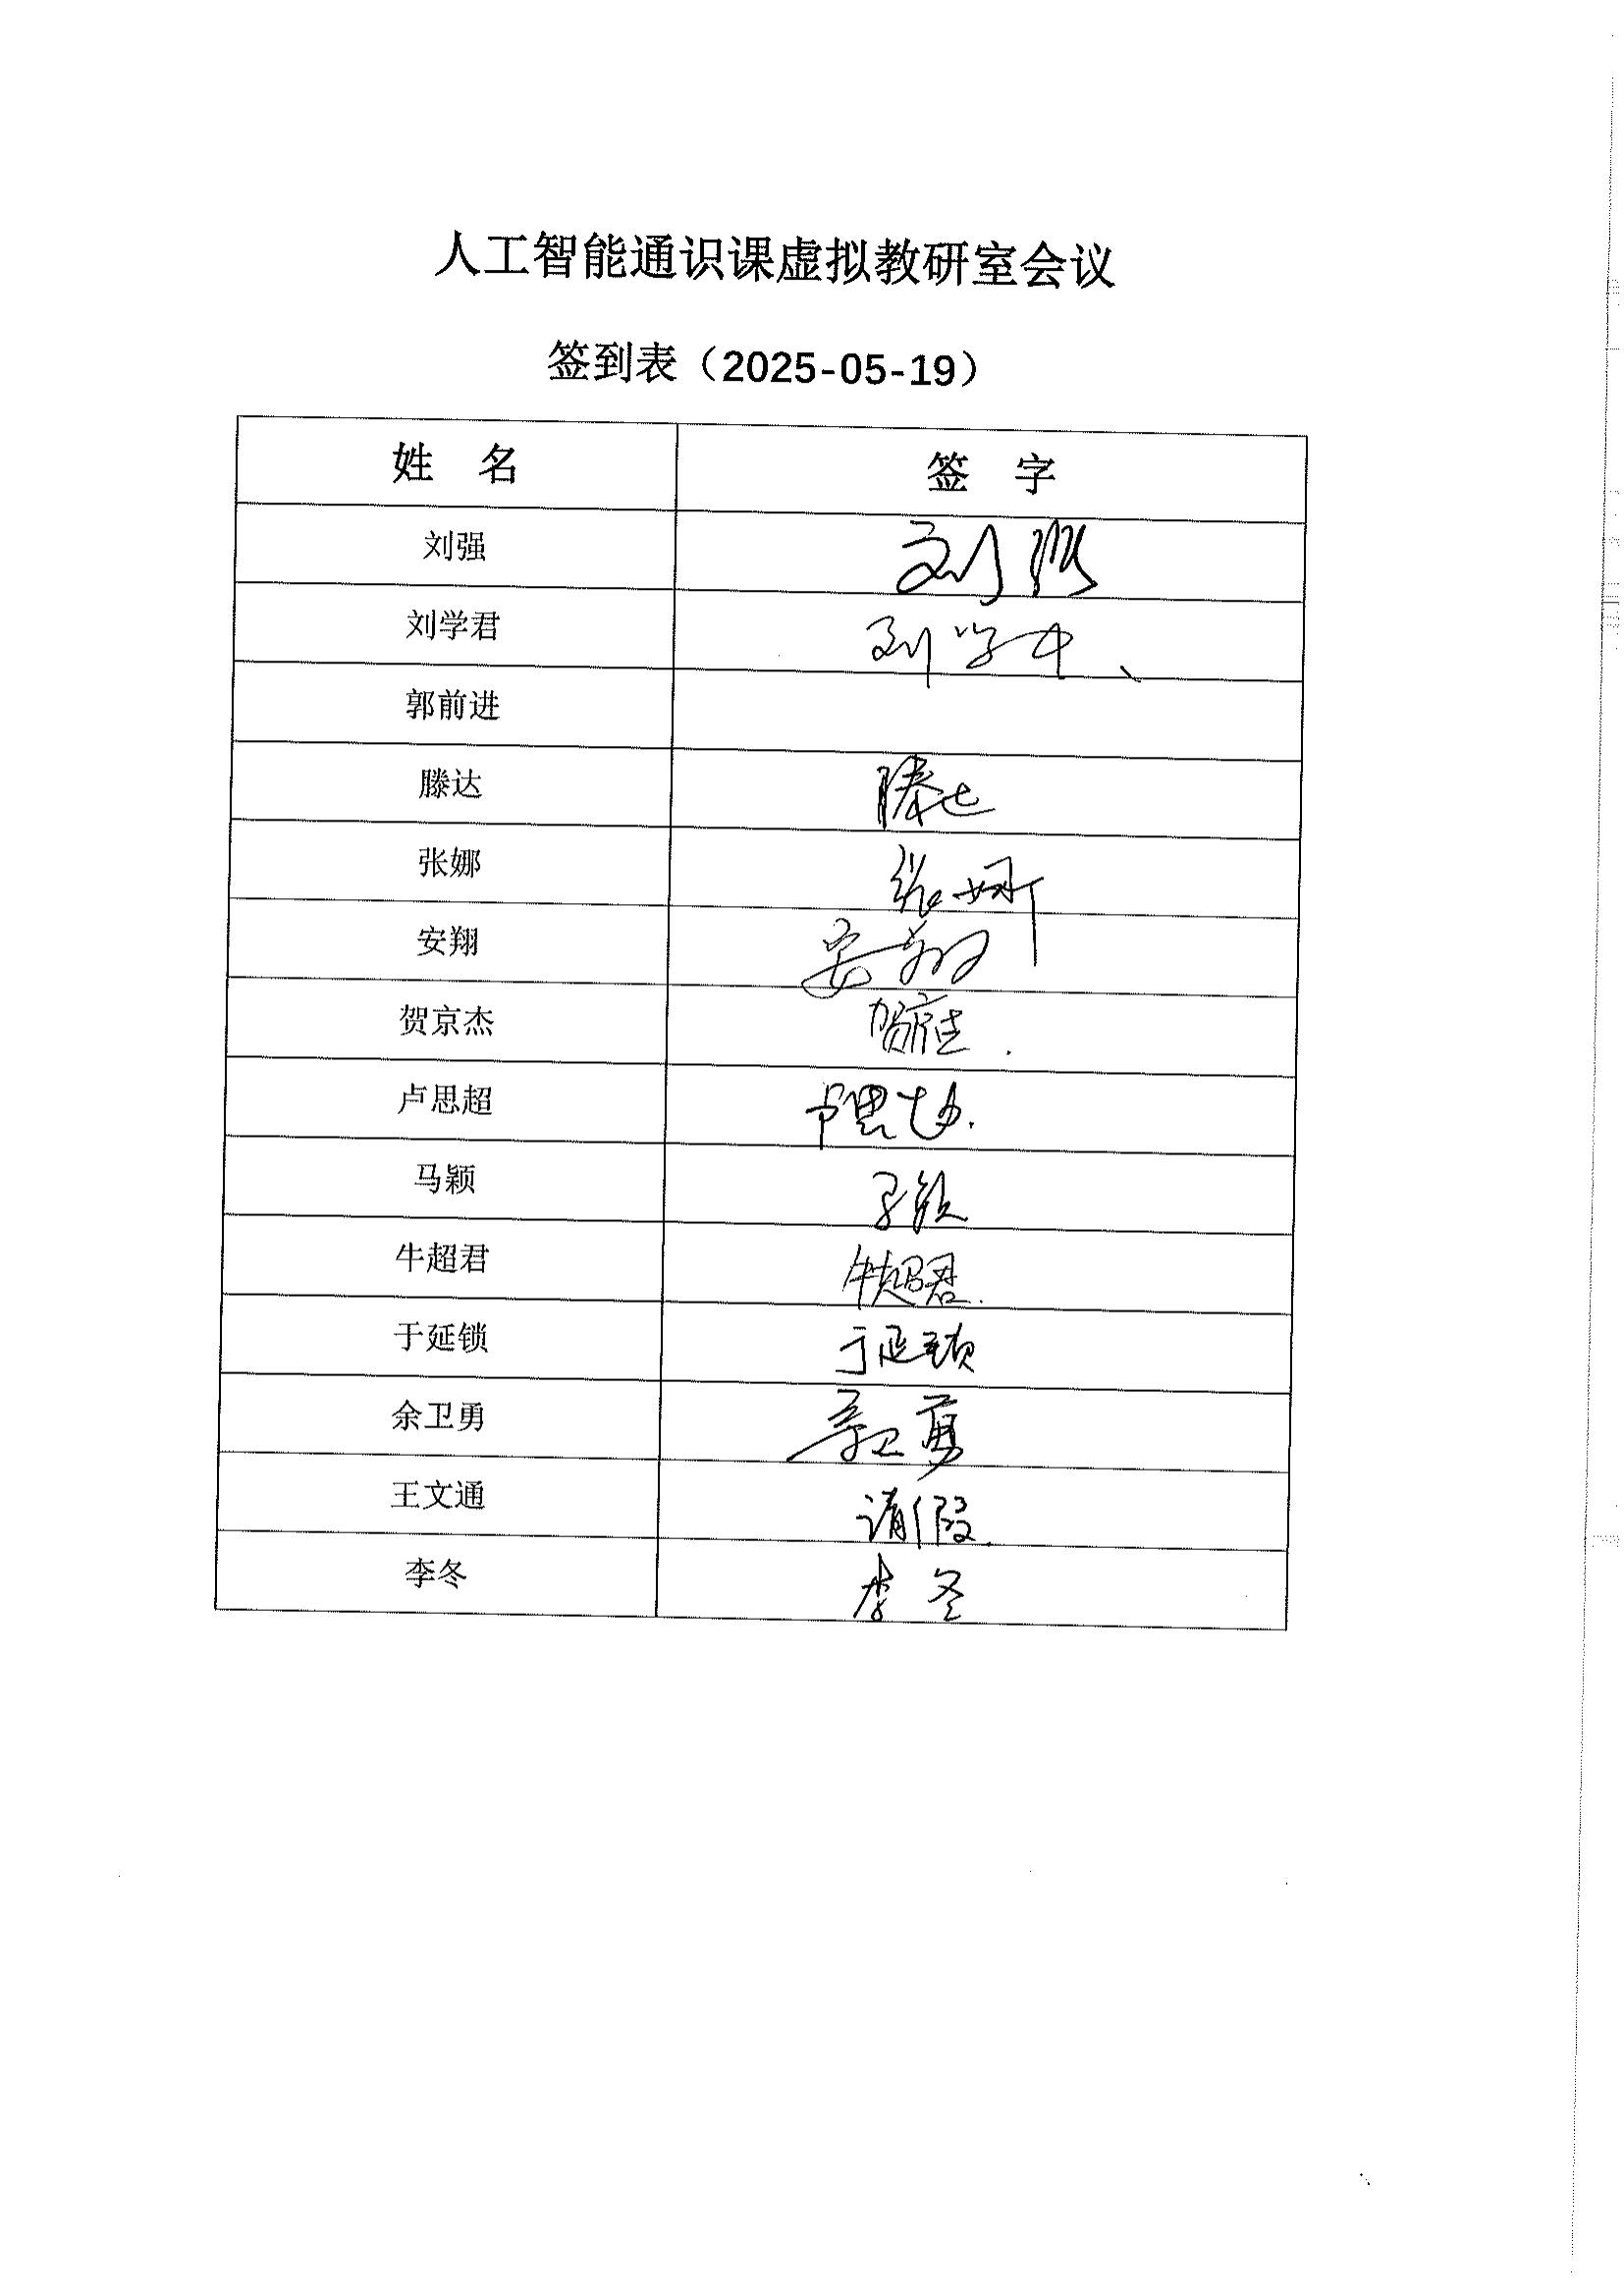 人工智能通识课虚拟教研室会议
签到表（2025-05-19）
姓 名 签 字
刘强 刘强
刘学君 刘学君
郭前进
滕达 滕达
张娜 张娜
安翔 安翔
贺京杰 贺京杰
卢思超 卢思超
马颖 马颖
牛超君 牛超君
于延锁 于延锁
余卫勇 余卫勇
王文通 请假
李冬 李冬